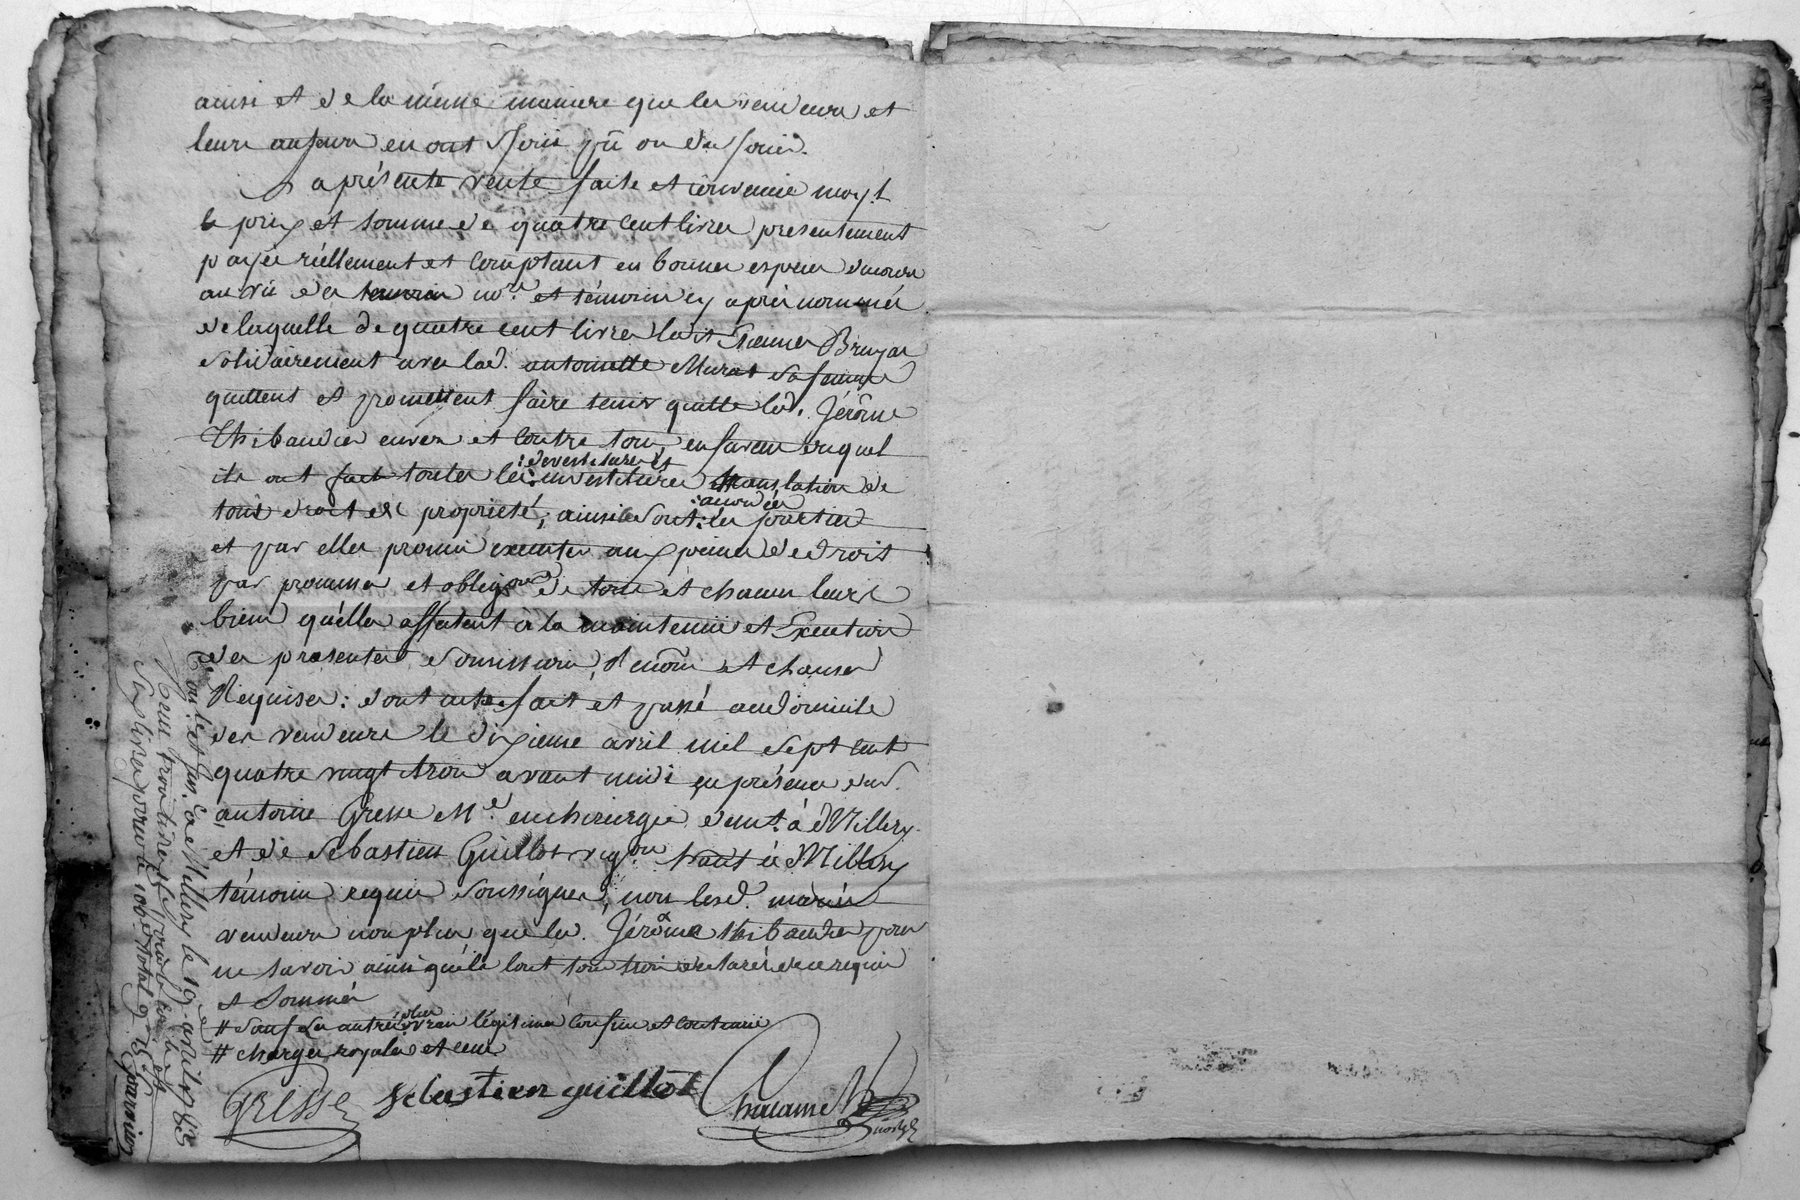 ainsi et de la même maniere que les vendeurs et
leurs auteurs en ont Joüi pû ou du Joüir.
La présente vente faite et convenüe moy.t
le prix et somme de quatre cent livres presentement
payée réellement et comptant en bonnes especes
au vû des no.re et témoins cy après nommés
de laquelle de quatre cent livres ledit Bruyas
solidairement avec lad. antoinette Murat sa femme
quittent et promettent faire tenir quitte led. Jérôme
Thibaudier envers et contre tous en faveur duquel
:devestitures et
ils ont fait toutes les: investitures translation de
:accordées
tous droit de propriété; ainsi le sont: les parties
et par elles promis executer aux peines de droit
par promesse et oblig.on de tous et chacun leurs
biens qu'elles affectent à la maintenüe et Execution
des presentes soumissions, Renon. et clauses
Requises: dont acte fait et passé au domicile
des vendeurs le dixieme avril mil sept cent
quatre vingt trois avant midi en présence du s.
antoine Gresse M.e en chirurgie dem.t à Millery
et de Sebastien Guillot vig.on h'ant à Millery
témoins requis soussignés, non lesd. mariés
vendeurs non plus que led. Jérôme thibaudier pour
ne savoir ainsi qu'ils l'ont tous trois déclaré de ce requis
et sommés
# sauf les autres plus vrais légitimes confins et contraire
# charges royales et cens
Gresse Sebastien guillot Chalamel
Con.lé et Jns. à Millery le 19. avril 1783
Reçu trois
Six livres pour le 100.e total 9.